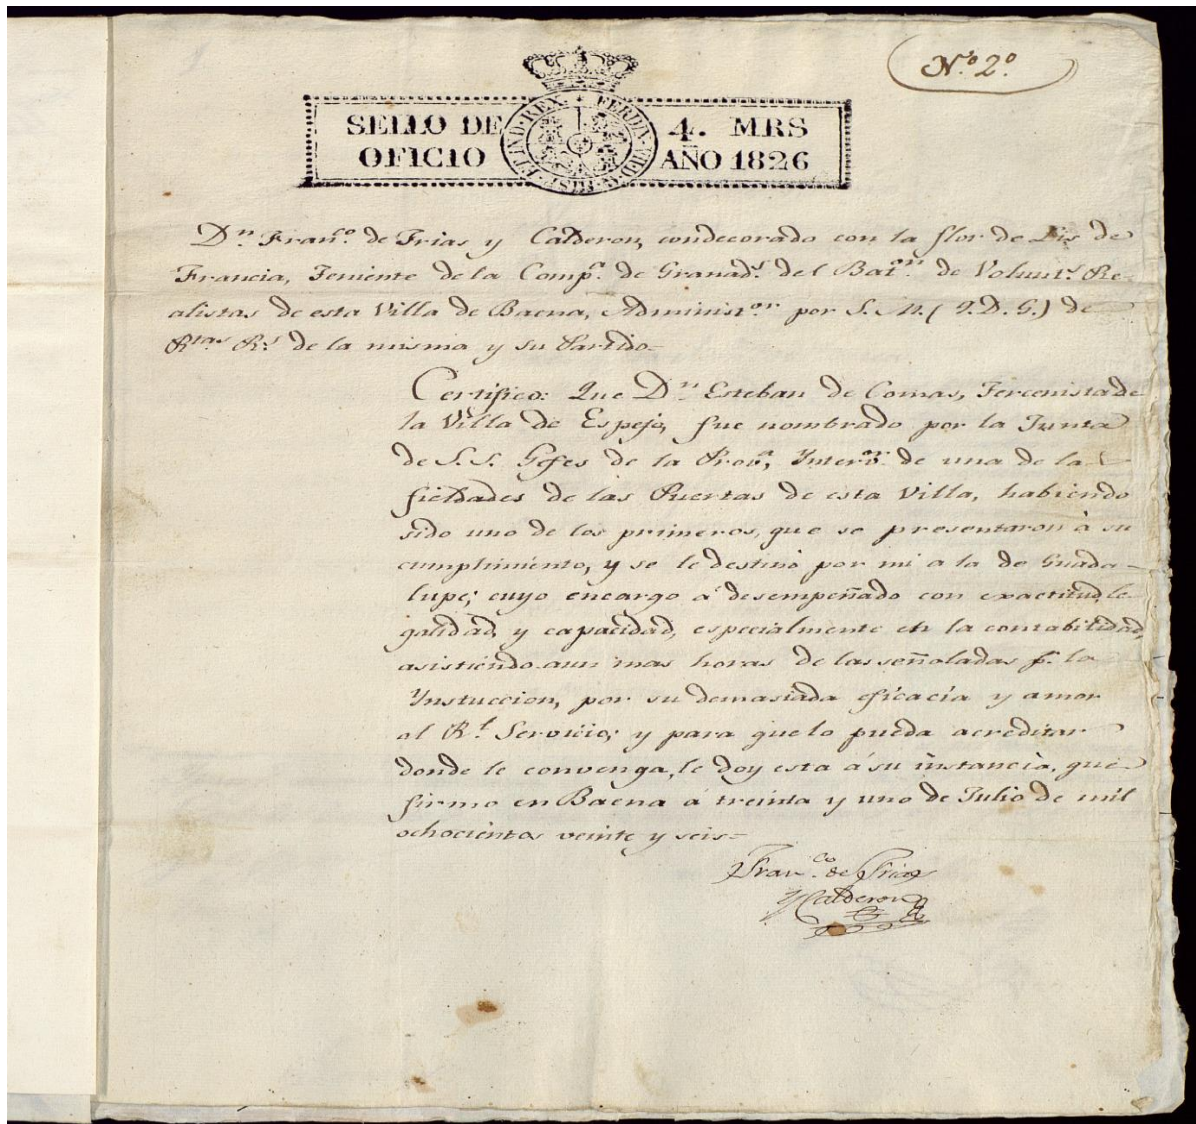 Nº. 2º.
SELLO DE 4. MRS
OFICIO AÑO 1826
Dn. Franco. de Frias y Calderon, condecorado con la flor de Lis de
Francia, Teniente de la Compa. de Granads. del Baton. de Volunts. Re-
alistas de esta Villa de Baena, Administor. por S. M. (Q. D. G.) de
Rtas. Rs. de la misma y su Partido=
Certifico: Que Dn. Esteban de Comas, Tercenista de
la Villa de Espejo, fue nombrado por la Junta
de S. S. Gefes de la Prova., Interor. de una de la
fieldades de las Puertas de esta Villa, habiendo
sido uno de los primeros, que se presentaron à su
cumplimiento, y se le destinó por mi a la de Guada-
lupe; cuyo encargo á desempeñado con exactitud, le-
galidad, y capacidad, especialmente en la contabilidad,
asistiendo aun mas horas de las señoladas pr. la
Ynstuccion, por su demasiada eficacia y amor
al Rl. Servicio; y para que lo pueda acreditar
donde le convenga, le doy esta á su instancia, que
firmo en Baena á treinta y uno de Julio de mil
ochocientos veinte y seis=
Franco. de Frias
y Calderon